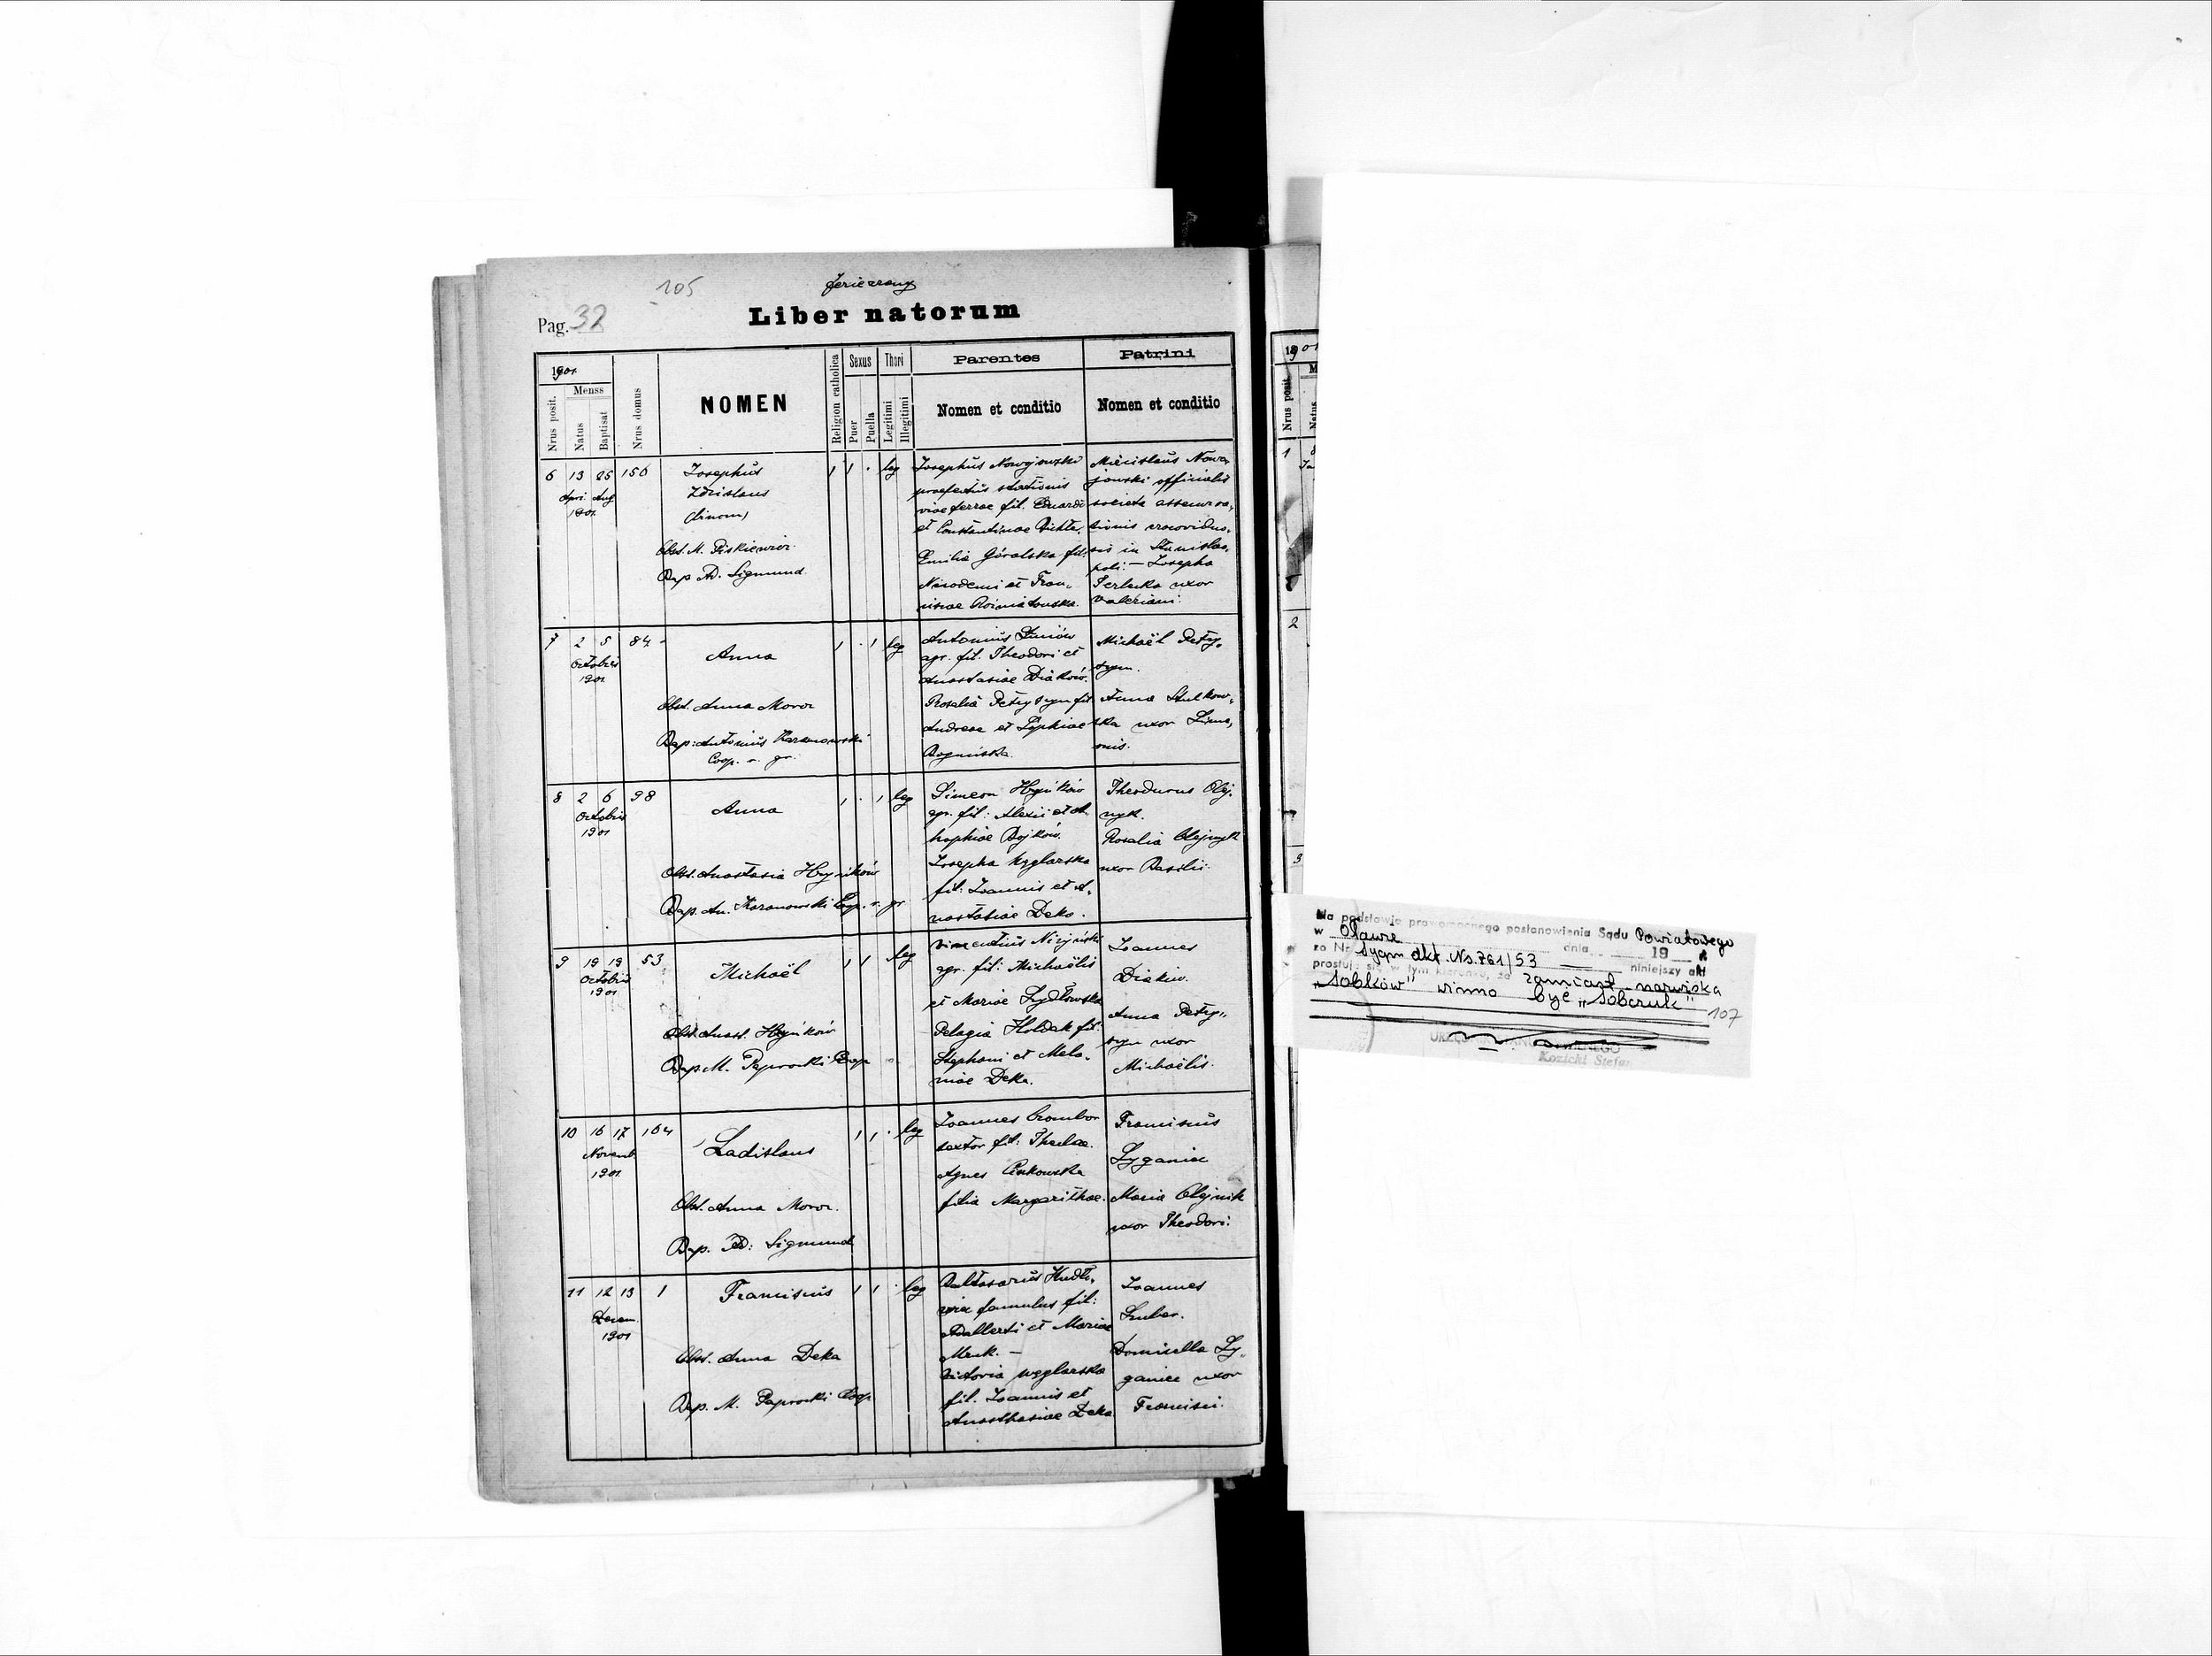 105
Jezierzany
Liber natorum
Pag. 32
1901
Nrus posit.
Menss
Natus
Baptisat
Nrus domus
NOMEN
Religion catholica
Sexus
Puer
Puella
Thori
Legitimi
Illegitimi
Parentes
Nomen et conditio
Patrini
Nomen et conditio
6 13 25 156
Apri Aug
1901
Josephus
Zdzislaus
(binom)
Obst. M. Piskiewicz
Bap. Ad. Sigmund
leg
Josephus Nowojowski
praefectus stationis
viae ferrae fil. Eduardi
et Constantinae
Emilia Góralska fil.
Nicodemi et Fran-
ciscae
Miecislaus Nowo-
jowski officialis
societa assecura-
tionis cracovidus-
sis in Stanislao-
poli. — Josepha
uxor
Valeriani.
7 2 5 84
Octobris
1901
Anna
Obst. Anna Moroz
Bap: Antonius Karanowski
Coop. r. gr.
leg
Antonius
agr. fil. Theodori et
Anastasiae Diaków.
Rosalia Petryszyn fil
Andreae et Sophiae
Michaël Petry-
szyn.
Anna
ska uxor Simo-
nis.
8 2 6 98
Octobris
1901
Anna
Obst. Anastasia Hryńków
Bap. An. Karanowski Coop. r. gr
leg
Simeon Hryńków
agr. fil: Alexii et
Bojków.
Josepha Węglarska
fil: Joannis et A-
nastasiae Deka.
Theodorus Olej-
nyk.
Rosalia Olejnyk
uxor Basilii.
9 19 19 53
Octobris
1901
Michaël
Obst. Anast. Hryńków
Bap. M. Paprocki Coop
leg
Vincentius Niżyński
agr. fil: Michaëlis
et Mariae Szydłowska
Pelagia Holdak fil:
Stephani et Mela-
niae Deka.
Joannes
Diakiw.
Anna Petry-
szyn uxor
Michaëlis.
10 16 17 164
Novemb
1901
Ladislaus
Obst. Anna Moroz.
Bap. Ad: Sigmund
leg
Joannes
sartor fil: Theclae.
Agnes
filia Margarithae.
Franciscus
Cyganik
Maria Olejnik
uxor Theodori.
11 12 13 1
Decem.
1901
Franciscus
Obst. Anna Deka
Bap. M. Paprocki Coop
leg
Baltasarus
famulus fil:
Adalberti et Mariae
Victoria Węglarska
fil. Joannis et
Anasthasiae Deka
Joannes
Domicella Cy-
uxor
Francisci.
1901
Nrus posit.
Natus
1
2
3
Na podstawie prawomocnego postanowienia Sądu Powiatowego
w Oławie dnia 19 r.
za Nr Sygn akt. Ns. 761/53 niniejszy akt
prostuje się w tym kierunku, że zamiast nazwiska
„Sobków” winno być „Sobczuk”
107
Kozicki Stefan